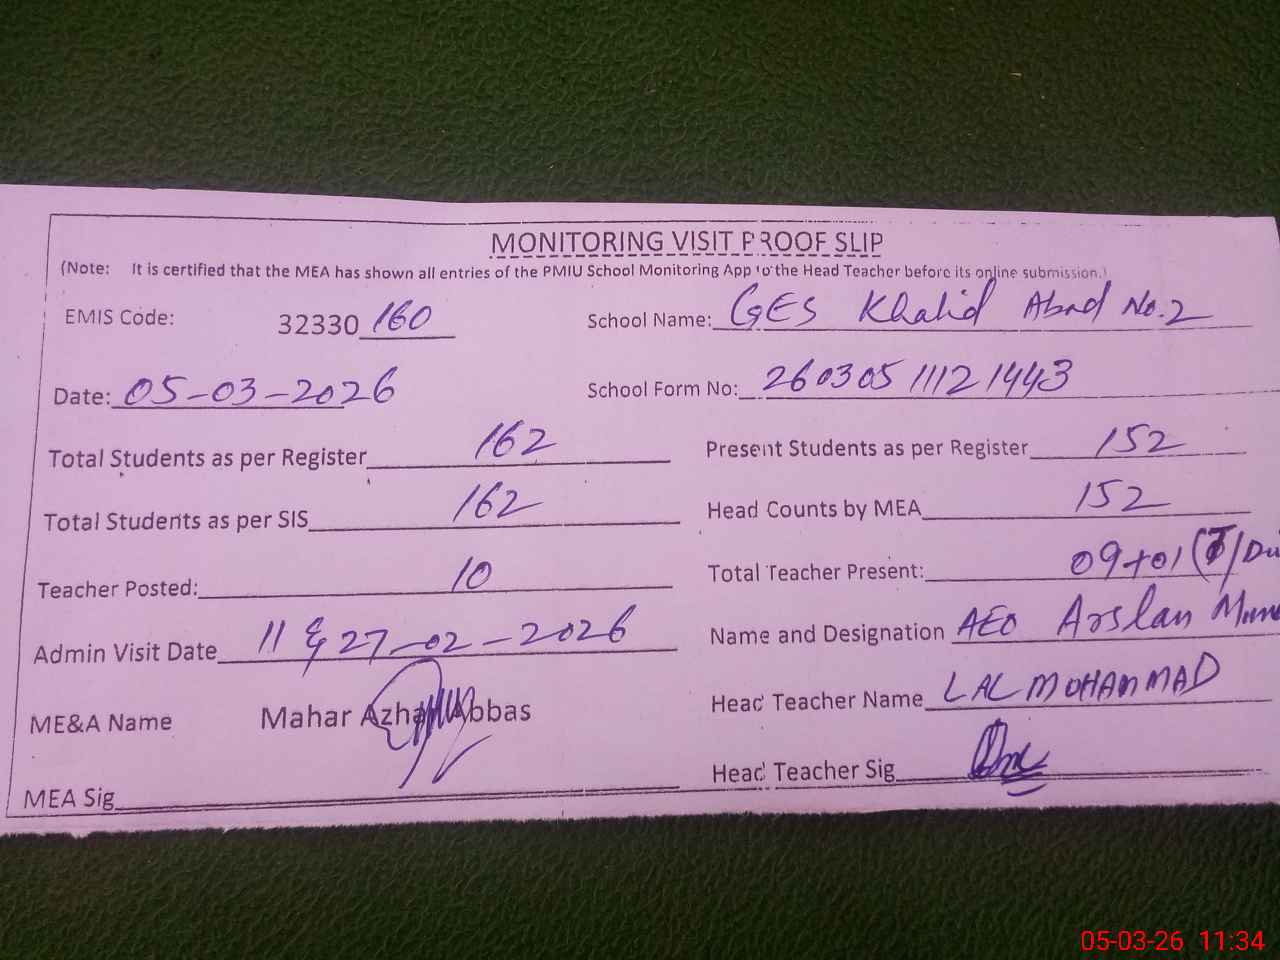 MONITORING VISIT PROOF SLIP
(Note: It is certified that the MEA has shown all entries of the PMIU School Monitoring App to the Head Teacher before its online submission.)
EMIS Code: 32330 160 School Name: GES Khalid Abad No.2
Date: 05-03-2026 School Form No: 260305 11121443
Total Students as per Register 162 Present Students as per Register 152
Total Students as per SIS 162 Head Counts by MEA 152
Teacher Posted: 10 Total Teacher Present: 09+01
Admin Visit Date 11 & 27-02-2026 Name and Designation AEO Arslan
ME&A Name Mahar Azhar Abbas Head Teacher Name LAL MOHAMMAD
MEA Sig Head Teacher Sig
05-03-26 11:34